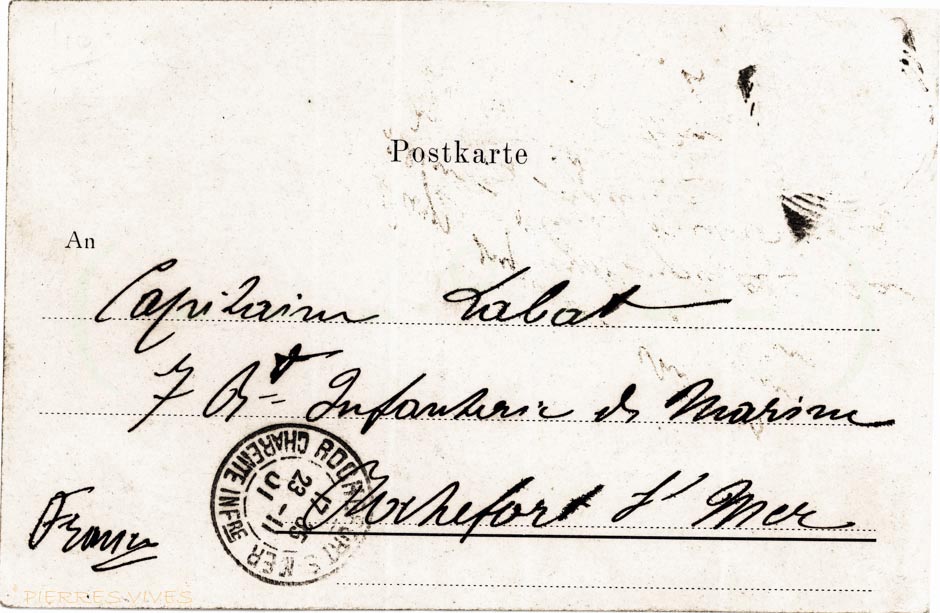 Postkarte
An
Capitaine Labat
7 Rt Infanterie de Marine
Rochefort s/ Mer
France
ROCHEFORT S. MER
CHARENTE INFRE
17 35
23 -11
01
PIERRES VIVES